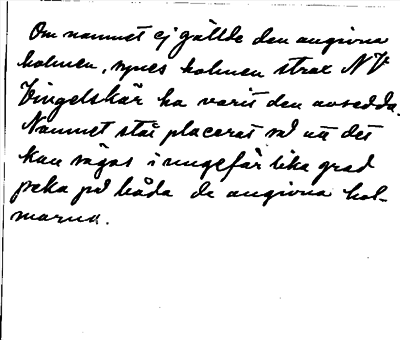 Om namnet ej gällde den angivna
holmen, synes holmen strax NV
Vingelskär ha varit den avsedda.
Namnet står placerat så att det
kan sägas i ungefär lika grad
peka på båda de angivna hol-
marna.